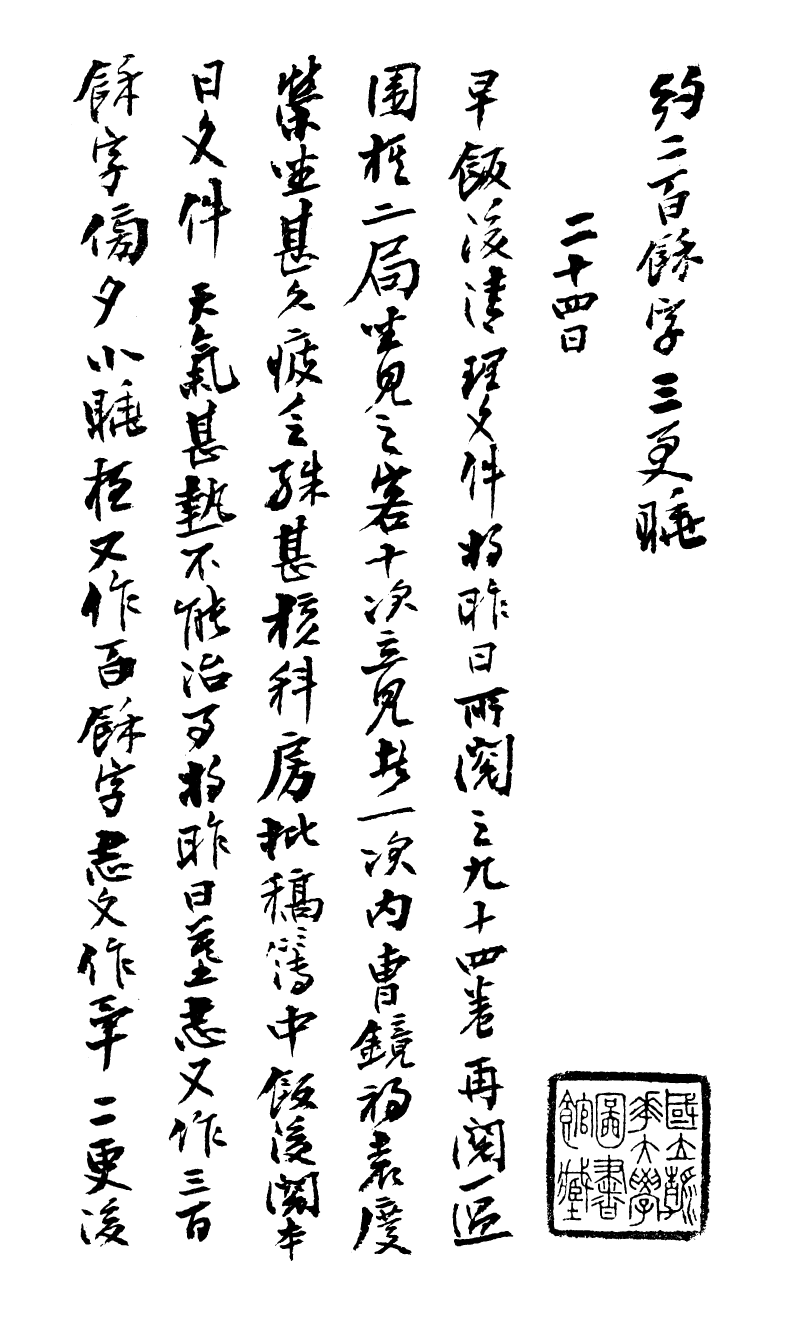 約二百餘字三更睡
二十四日
早飯後清理文件將昨日所閱之九十四卷再閱一過
圍棋二局坐見之客十次立見者一次內曹鏡初袁度
榮坐甚久疲乏殊甚核科房批稿簿中飯後閱本
日文件天氣甚熱不能治事將昨日墓志又作三百
餘字傍夕小睡夜又作百餘字志文作畢二更後
國立
華大學
圖書
館藏